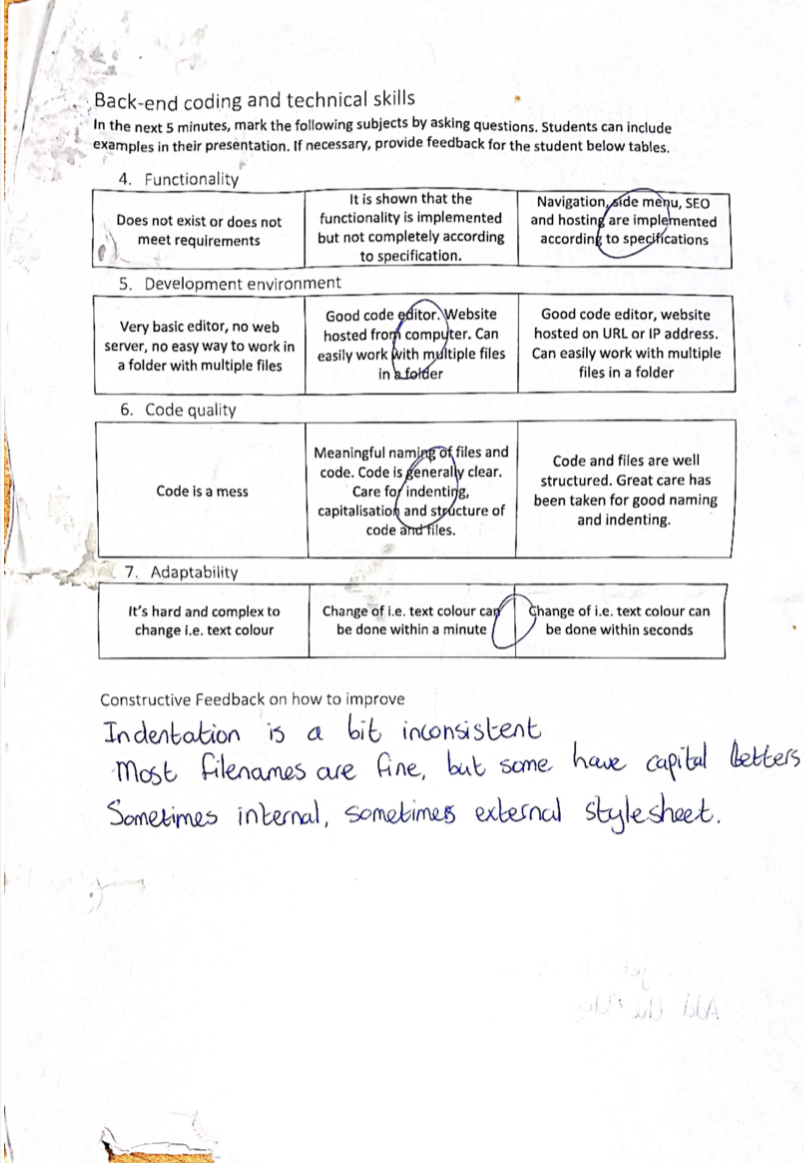 Back-end coding and technical skills
In the next 5 minutes, mark the following subjects by asking questions. Students can include
examples in their presentation. If necessary, provide feedback for the student below tables.
4. Functionality
Does not exist or does not
meet requirements
It is shown that the
functionality is implemented
but not completely according
to specification.
Navigation, side menu, SEO
and hosting are implemented
according to specifications
5. Development environment
Very basic editor, no web
server, no easy way to work in
a folder with multiple files
Good code editor. Website
hosted from computer. Can
easily work with multiple files
in a folder
Good code editor, website
hosted on URL or IP address.
Can easily work with multiple
files in a folder
6. Code quality
Code is a mess
Meaningful naming of files and
code. Code is generally clear.
Care for indenting,
capitalisation and structure of
code and files.
Code and files are well
structured. Great care has
been taken for good naming
and indenting.
7. Adaptability
It's hard and complex to
change i.e. text colour
Change of i.e. text colour can
be done within a minute
Change of i.e. text colour can
be done within seconds
Constructive Feedback on how to improve
Indentation is a bit inconsistent
Most filenames are fine, but some have capital letters
Sometimes internal, sometimes external stylesheet.